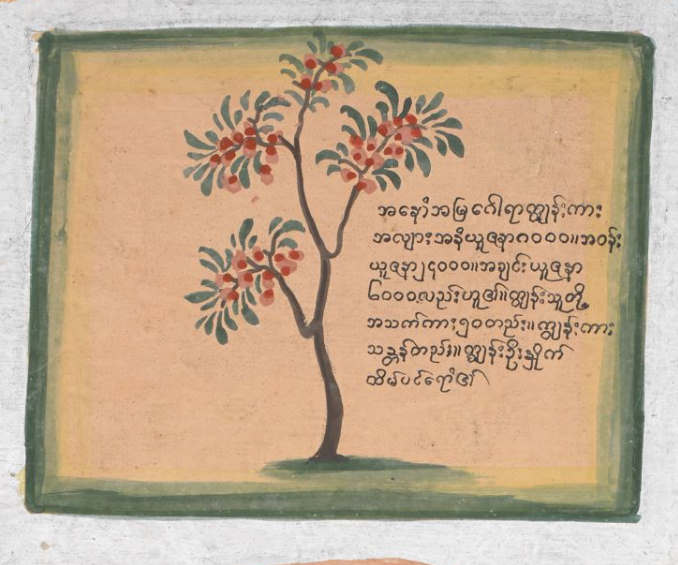 အနောံအမြဂေါရာကျွန်းကား
အလျားအနံယူဇနာ၈၀၀၀။အဝန်း
ယူဇနာ၂၄၀၀၀။အချင်းယူဇနာ
၆၀၀၀လည်းဟူ၏။ကျွန်းသူတို့
အသက်ကား၅၀တည်း။ကျွန်းကား
သန္တန်တည်း။ကျွန်းဦး၌ကုက်
ထိမ်ပင်ရောံ၏